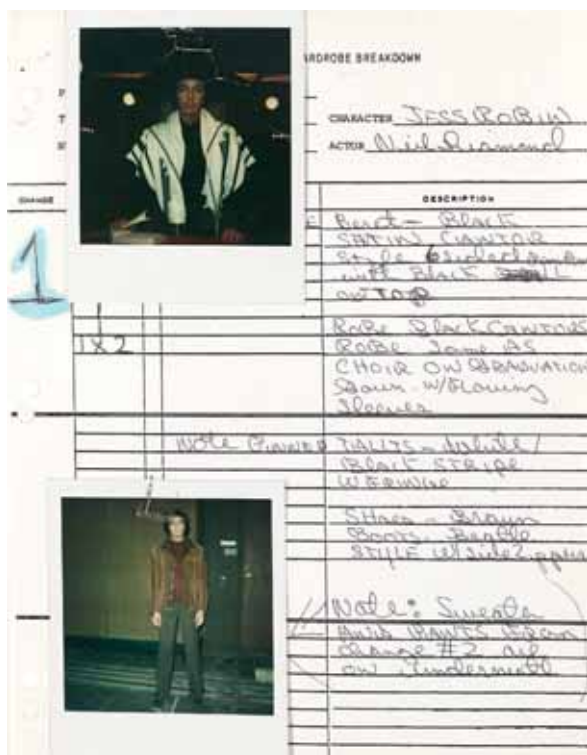 ARDROBE BREAKDOWN
CHARACTER JESS ROBIN
ACTOR Neil Diamond
CHANGE
DESCRIPTION
1
Beret - Black
SATIN CANTOR
Style 6 sided
with BLACK
ON TOP
Robe Black CANTORS
1 X 2
ROBE Same AS
CHOIR OR GRADUATION
Gown - W/Flowing
Sleeves
Note PINNED TALITS - White/
BLACK STRIPE
Shoes - Brown
Boots - Beatle
STYLE W/side Zipper
Note: Sweater
AND PANTS From
Change #2 are
on underneath